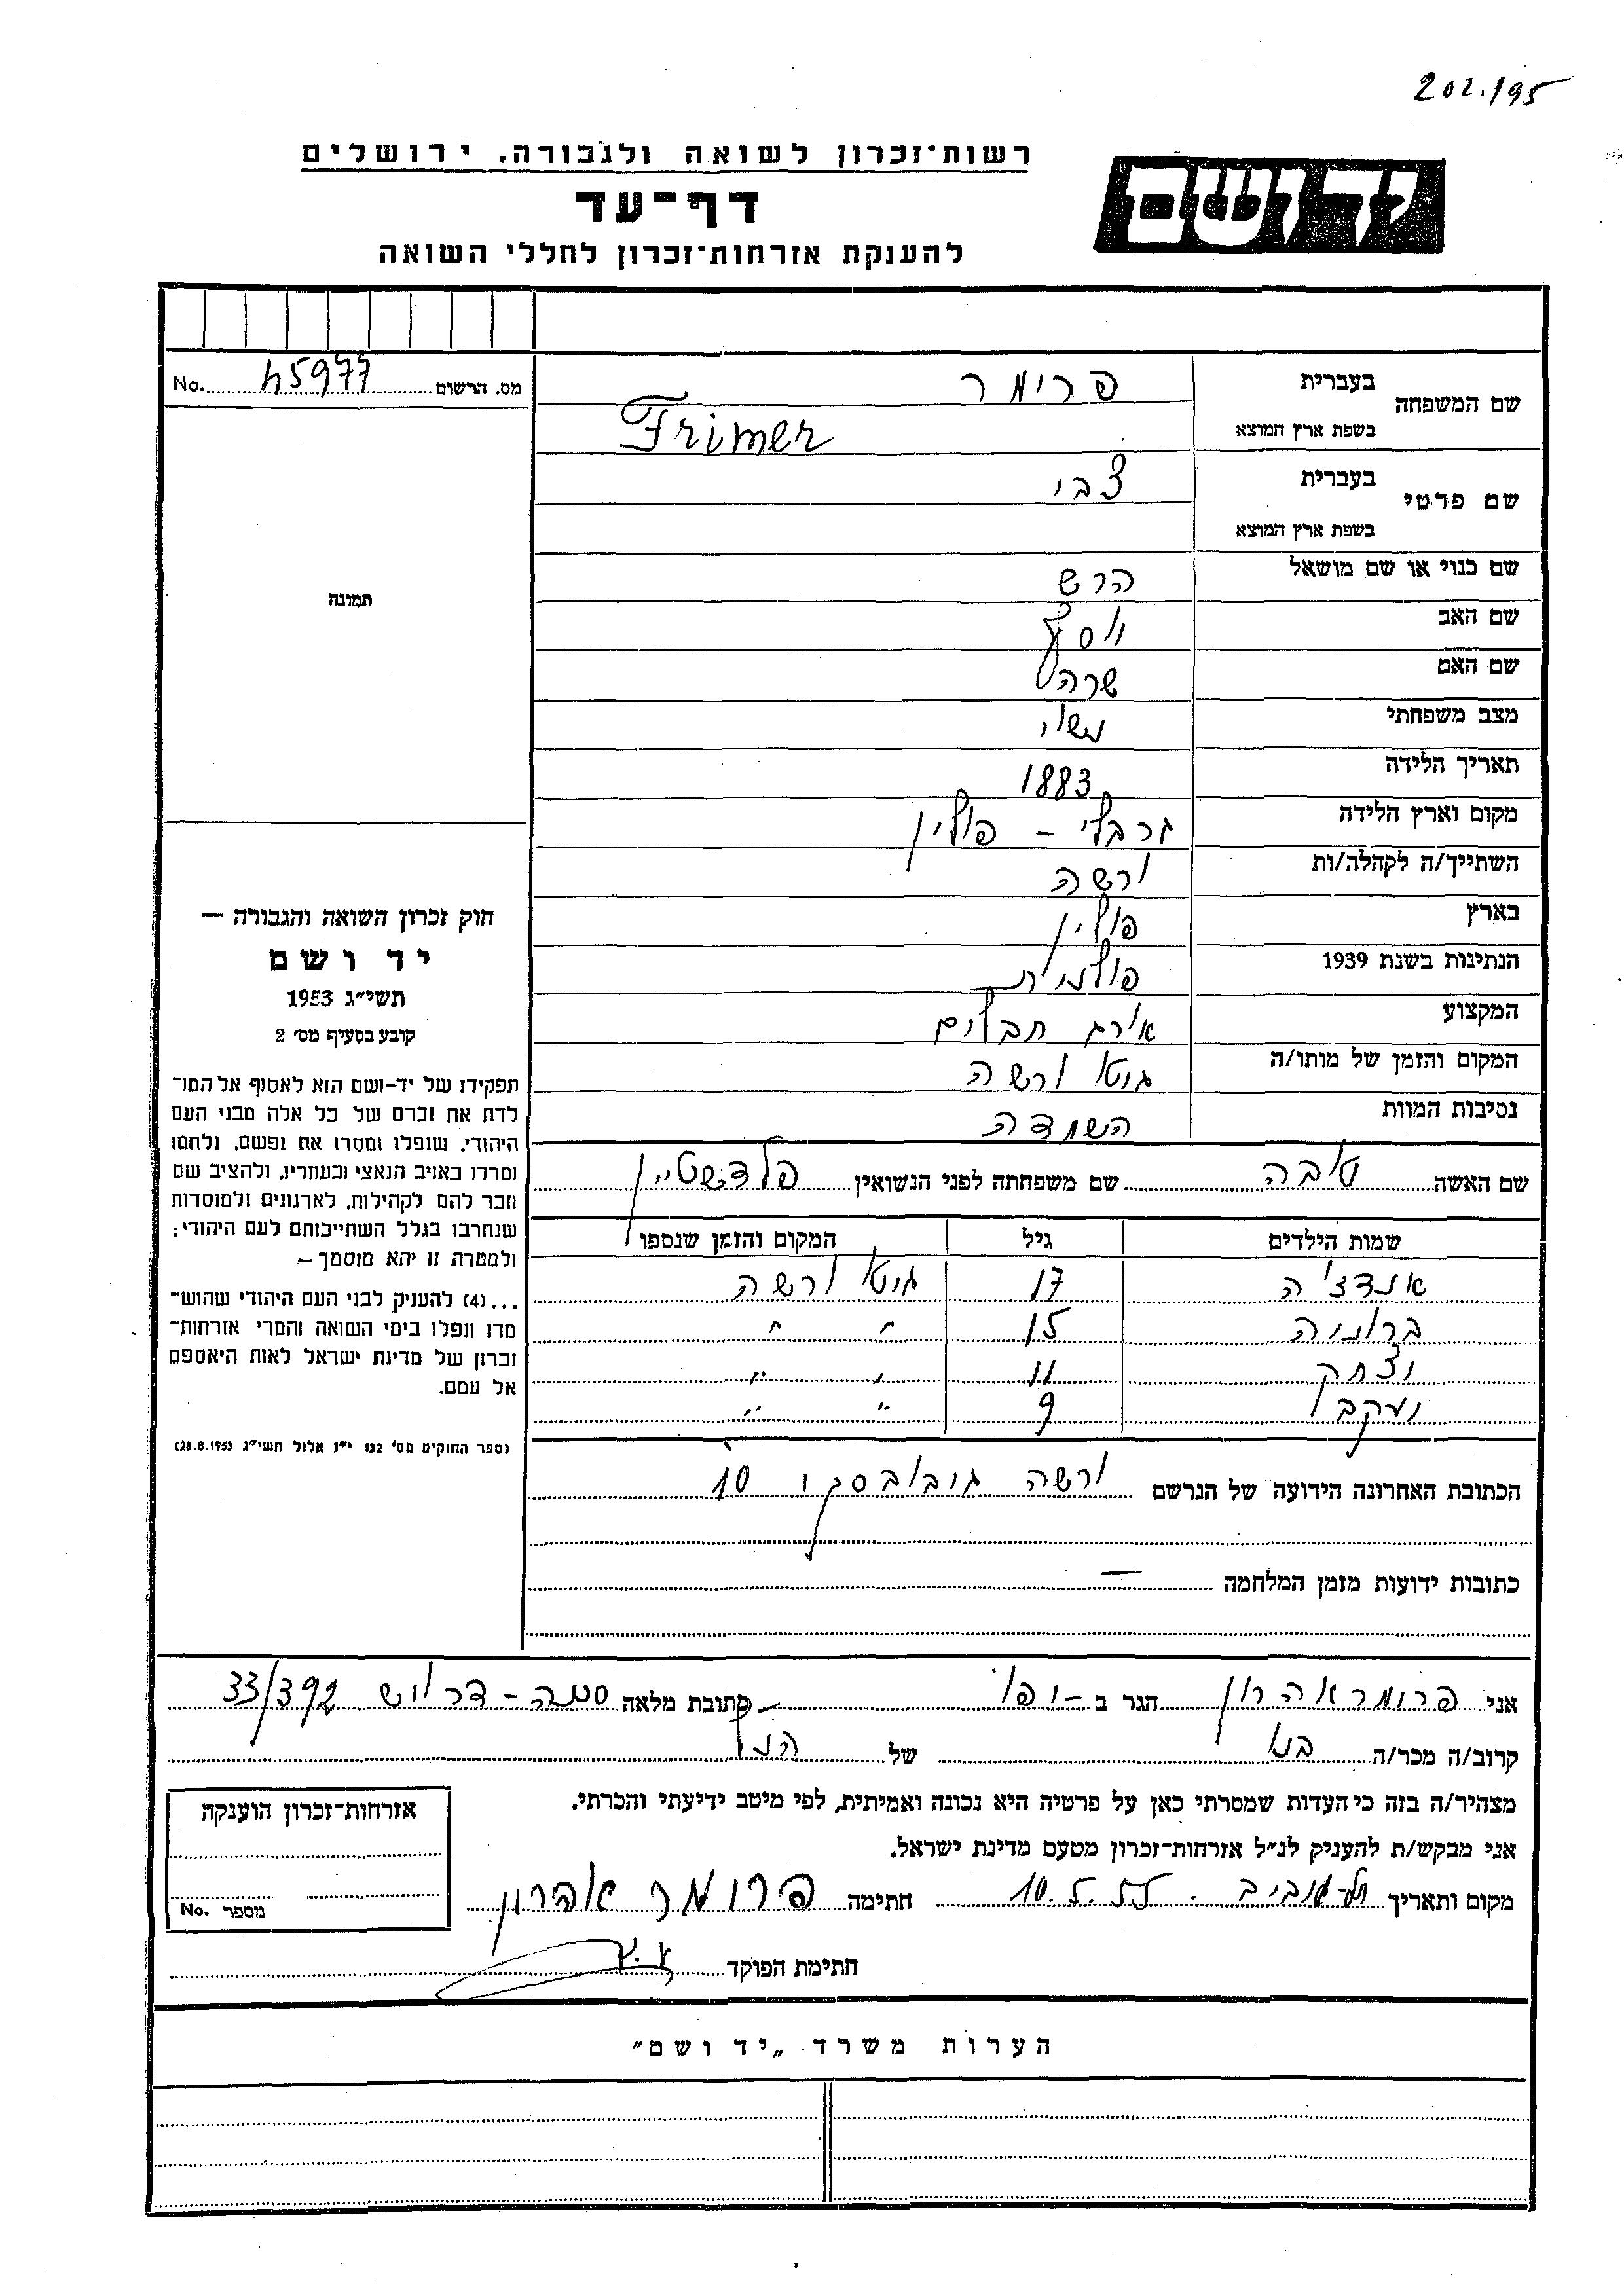 202.195
רשות־זכרון לשואה ולגבורה, ירושלים
יד ושם
דף־עד
להענקת אזרחות־זכרון לחללי השואה
מס. הרשום 45977 No.
שם המשפחה
בעברית פרימר
בשפת ארץ המוצא Frimer
שם פרטי
בעברית צבי
בשפת ארץ המוצא
שם כנוי או שם מושאל הרש
שם האב יוסף
שם האם שרה
מצב משפחתי נשוי
תאריך הלידה 1883
מקום וארץ הלידה - פולין
השתייך/ה לקהלה/ות ורשה
בארץ פולין
הנתינות בשנת 1939 פולנית
המקצוע אורג חבלים
המקום והזמן של מותו/ה גיטו ורשה
נסיבות המוות השמדה
שם האשה טובה שם משפחתה לפני הנשואין
שמות הילדים גיל המקום והזמן שנספו
אנדצ'ה 17 גיטו ורשה
ברוניה 15 " "
יצחק 11 " "
יעקב 9 " "
הכתובת האחרונה הידועה של הנרשם ורשה 10
כתובות ידועות מזמן המלחמה —
תמונה
חוק זכרון השואה והגבורה —
יד ושם
תשי״ג 1953
קובע בסעיף מס׳ 2
תפקידו של יד-ושם הוא לאסוף אל המו־
לדת את זכרם של כל אלה מבני העם
היהודי, שנפלו ומסרו את נפשם, נלחמו
ומרדו באויב הנאצי ובעוזריו, ולהציב שם
וזכר להם לקהילות, לארגונים ולמוסדות
שנחרבו בגלל השתייכותם לעם היהודי;
ולמטרה זו יהא מוסמך —
...(4) להעניק לבני העם היהודי שהוש־
מדו ונפלו בימי השואה והמרי אזרחות־
זכרון של מדינת ישראל לאות היאספם
אל עמם.
(ספר החוקים מס׳ 132 י״ז אלול תשי״ג 28.8.1953)
אני פרומר אהרון הגר ב - יפו כתובת מלאה 33/392
קרוב/ה מכר/ה בנו של הנ״ל
מצהיר/ה בזה כי העדות שמסרתי כאן על פרטיה היא נכונה ואמיתית, לפי מיטב ידיעתי והכרתי.
אני מבקש/ת להעניק לנ״ל אזרחות־זכרון מטעם מדינת ישראל.
מקום ותאריך תל-אביב 10.5.55 חתימה פרומר אהרון
חתימת הפוקד
אזרחות־זכרון הוענקה
מספר No.
הערות משרד „יד ושם״